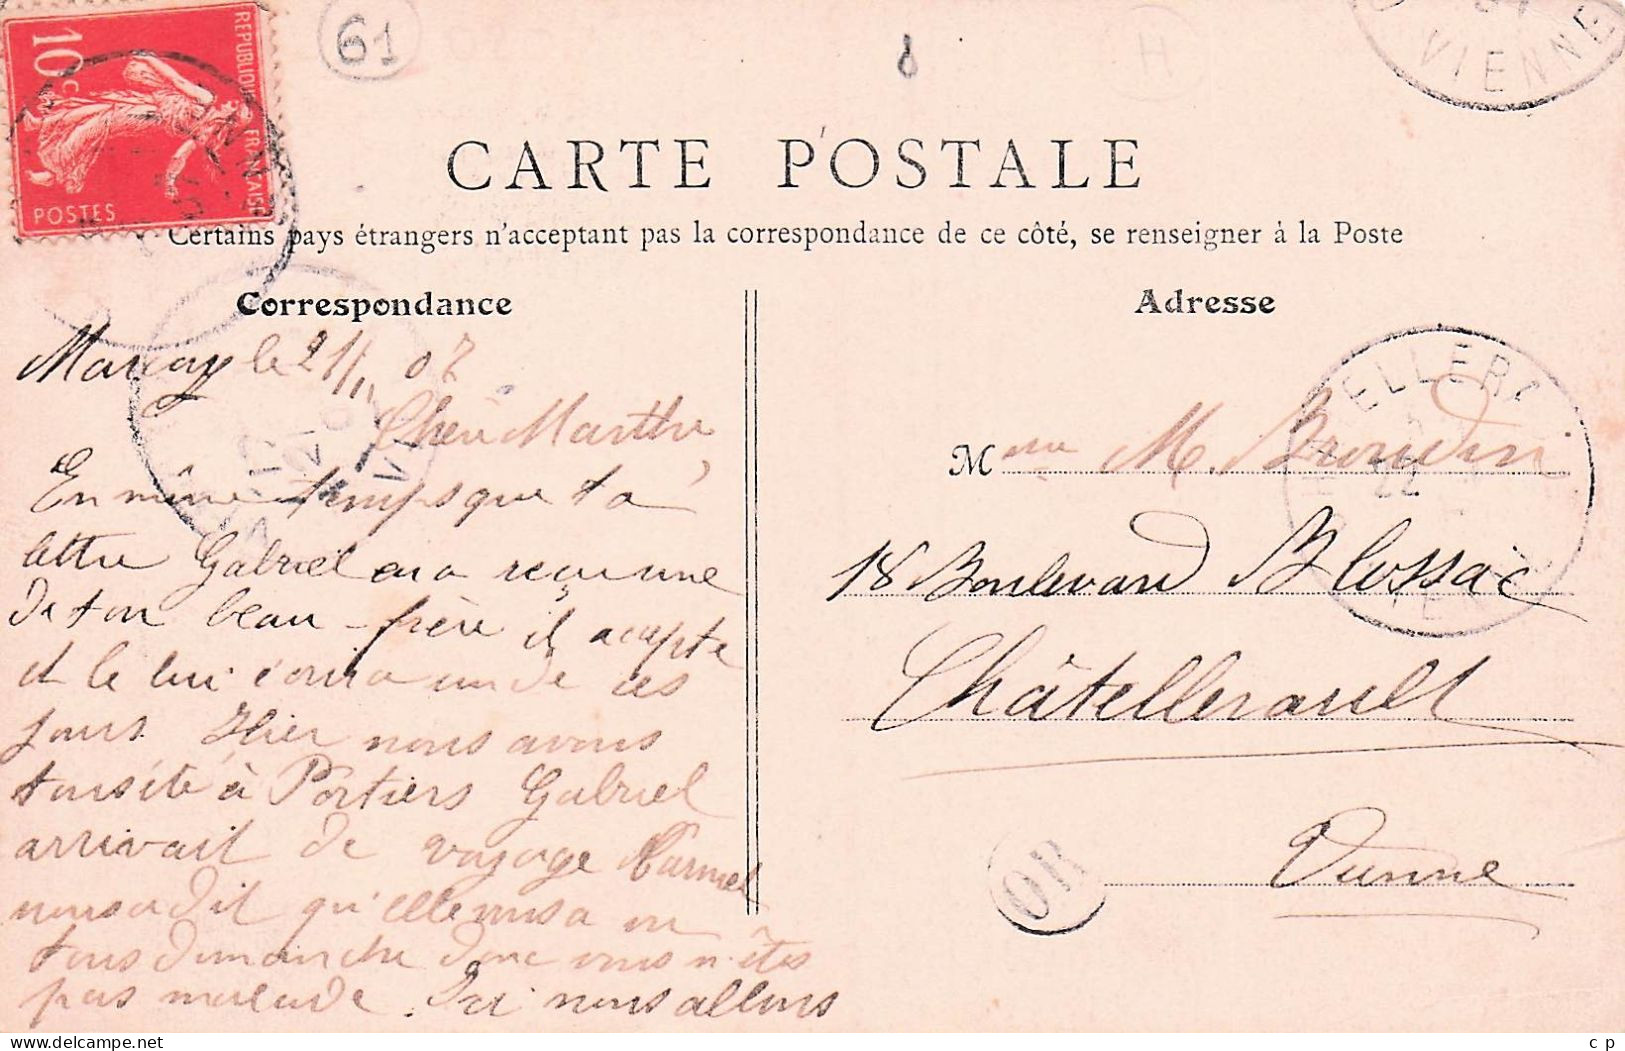 REPUBLIQUE FRANÇAISE
10c
POSTES
61
H
VIENNE
CARTE POSTALE
Certains pays étrangers n'acceptant pas la correspondance de ce côté, se renseigner à la Poste
Correspondance
Marçay le 21/11 07
Chère Marthe
En même temps que ta
lettre Gabriel en a reçu une
de ton beau-frère il accepte
et le lui écrira un de ces
jours. Hier nous avons
tous été à Poitiers Gabriel
arrivait de voyage Carmel
nous a dit qu'elle vous a vu
tous dimanche donc vous n'êtes
pas malade. Ici nous allons
Adresse
Mme M. Broudin
18 Boulevard Blossac
Châtellerault
Vienne
OR
22
delcampe.net
c p